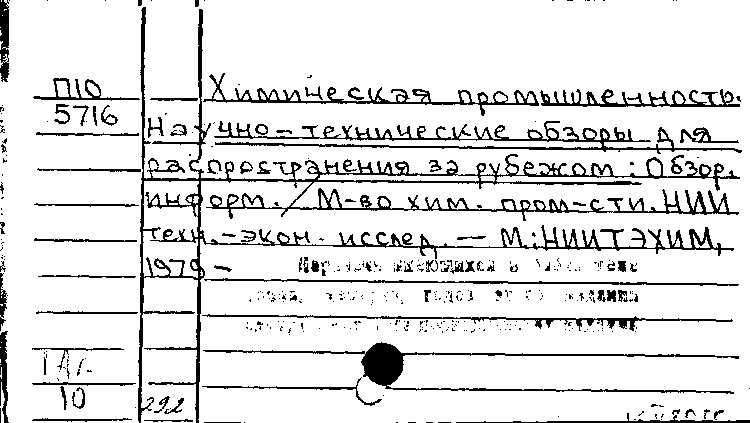 П10
5716
Химическая промышленность.
Научно-технические обзоры для
распространения за рубежом: Обзор.
информ. / М-во хим. пром-сти. НИИ
техн.-экон. исслед. — М.: НИИТЭХИМ,
1979 –
Перечень имеющихся в
10
292